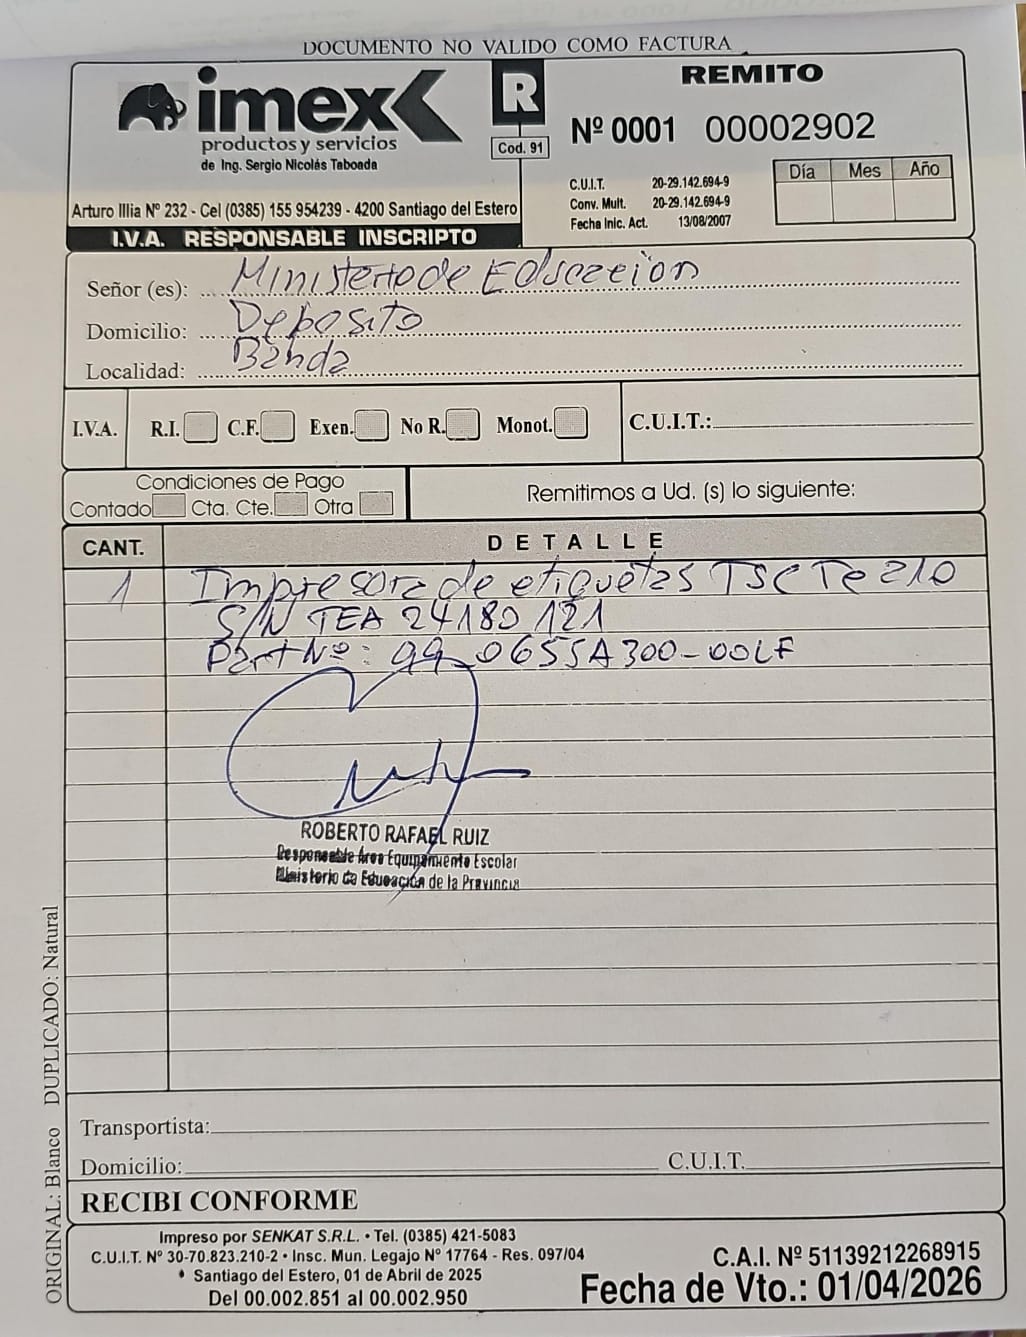 DOCUMENTO NO VALIDO COMO FACTURA
imex
productos y servicios
de Ing. Sergio Nicolás Taboada
Arturo Illia Nº 232 - Cel (0385) 155 954239 - 4200 Santiago del Estero
I.V.A. RESPONSABLE INSCRIPTO
R
Cod. 91
REMITO
Nº 0001 00002902
C.U.I.T. 20-29.142.694-9
Conv. Mult. 20-29.142.694-9
Fecha Inic. Act. 13/08/2007
Día Mes Año
Señor (es): Ministerio de Educacion
Domicilio: Deposito
Localidad: Banda
I.V.A. R.I. C.F. Exen. No R. Monot. C.U.I.T.:
Condiciones de Pago
Contado Cta. Cte. Otra
Remitimos a Ud. (s) lo siguiente:
CANT. DETALLE
1 Impresora de etiquetas TSC Te 210
S/N TEA 24180121
Part Nº: 99-065SA300-00LF
ROBERTO RAFAEL RUIZ
Responsable Área Equipamiento Escolar
Ministerio de Educación de la Provincia
Transportista:
Domicilio: C.U.I.T.
RECIBI CONFORME
ORIGINAL: Blanco DUPLICADO: Natural
Impreso por SENKAT S.R.L. • Tel. (0385) 421-5083
C.U.I.T. Nº 30-70.823.210-2 • Insc. Mun. Legajo Nº 17764 - Res. 097/04
• Santiago del Estero, 01 de Abril de 2025
Del 00.002.851 al 00.002.950
C.A.I. Nº 51139212268915
Fecha de Vto.: 01/04/2026